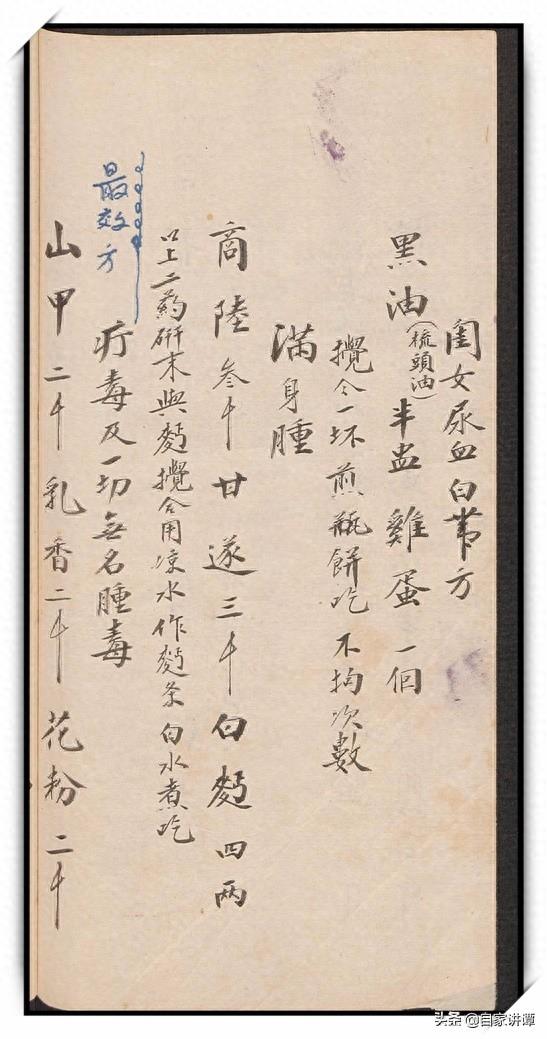 閨女尿血白带方
黑油(梳頭油)半盅 雞蛋一個
攪合一坯煎瓤餅吃 不拘次數
滿身腫
商陸叁千 甘遂三千 白麪四两
以上二药研末與麪攪合用凉水作麪条白水煮吃
疔毒及一切無名腫毒
最效方
山甲二千 乳香二千 花粉二千
头条 @自家讲谭